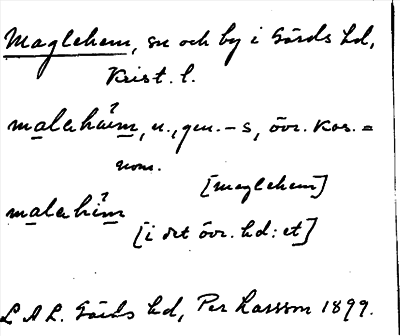 Maglehem, sn och by i Gärds hd,
Krist. l.
maleháim, n., gen. -s, övr. kas. =
nom.
[maglehem]
malehím
[i det övr. hd: et]
L A L. Gärds hd, Per Larsson 1899.